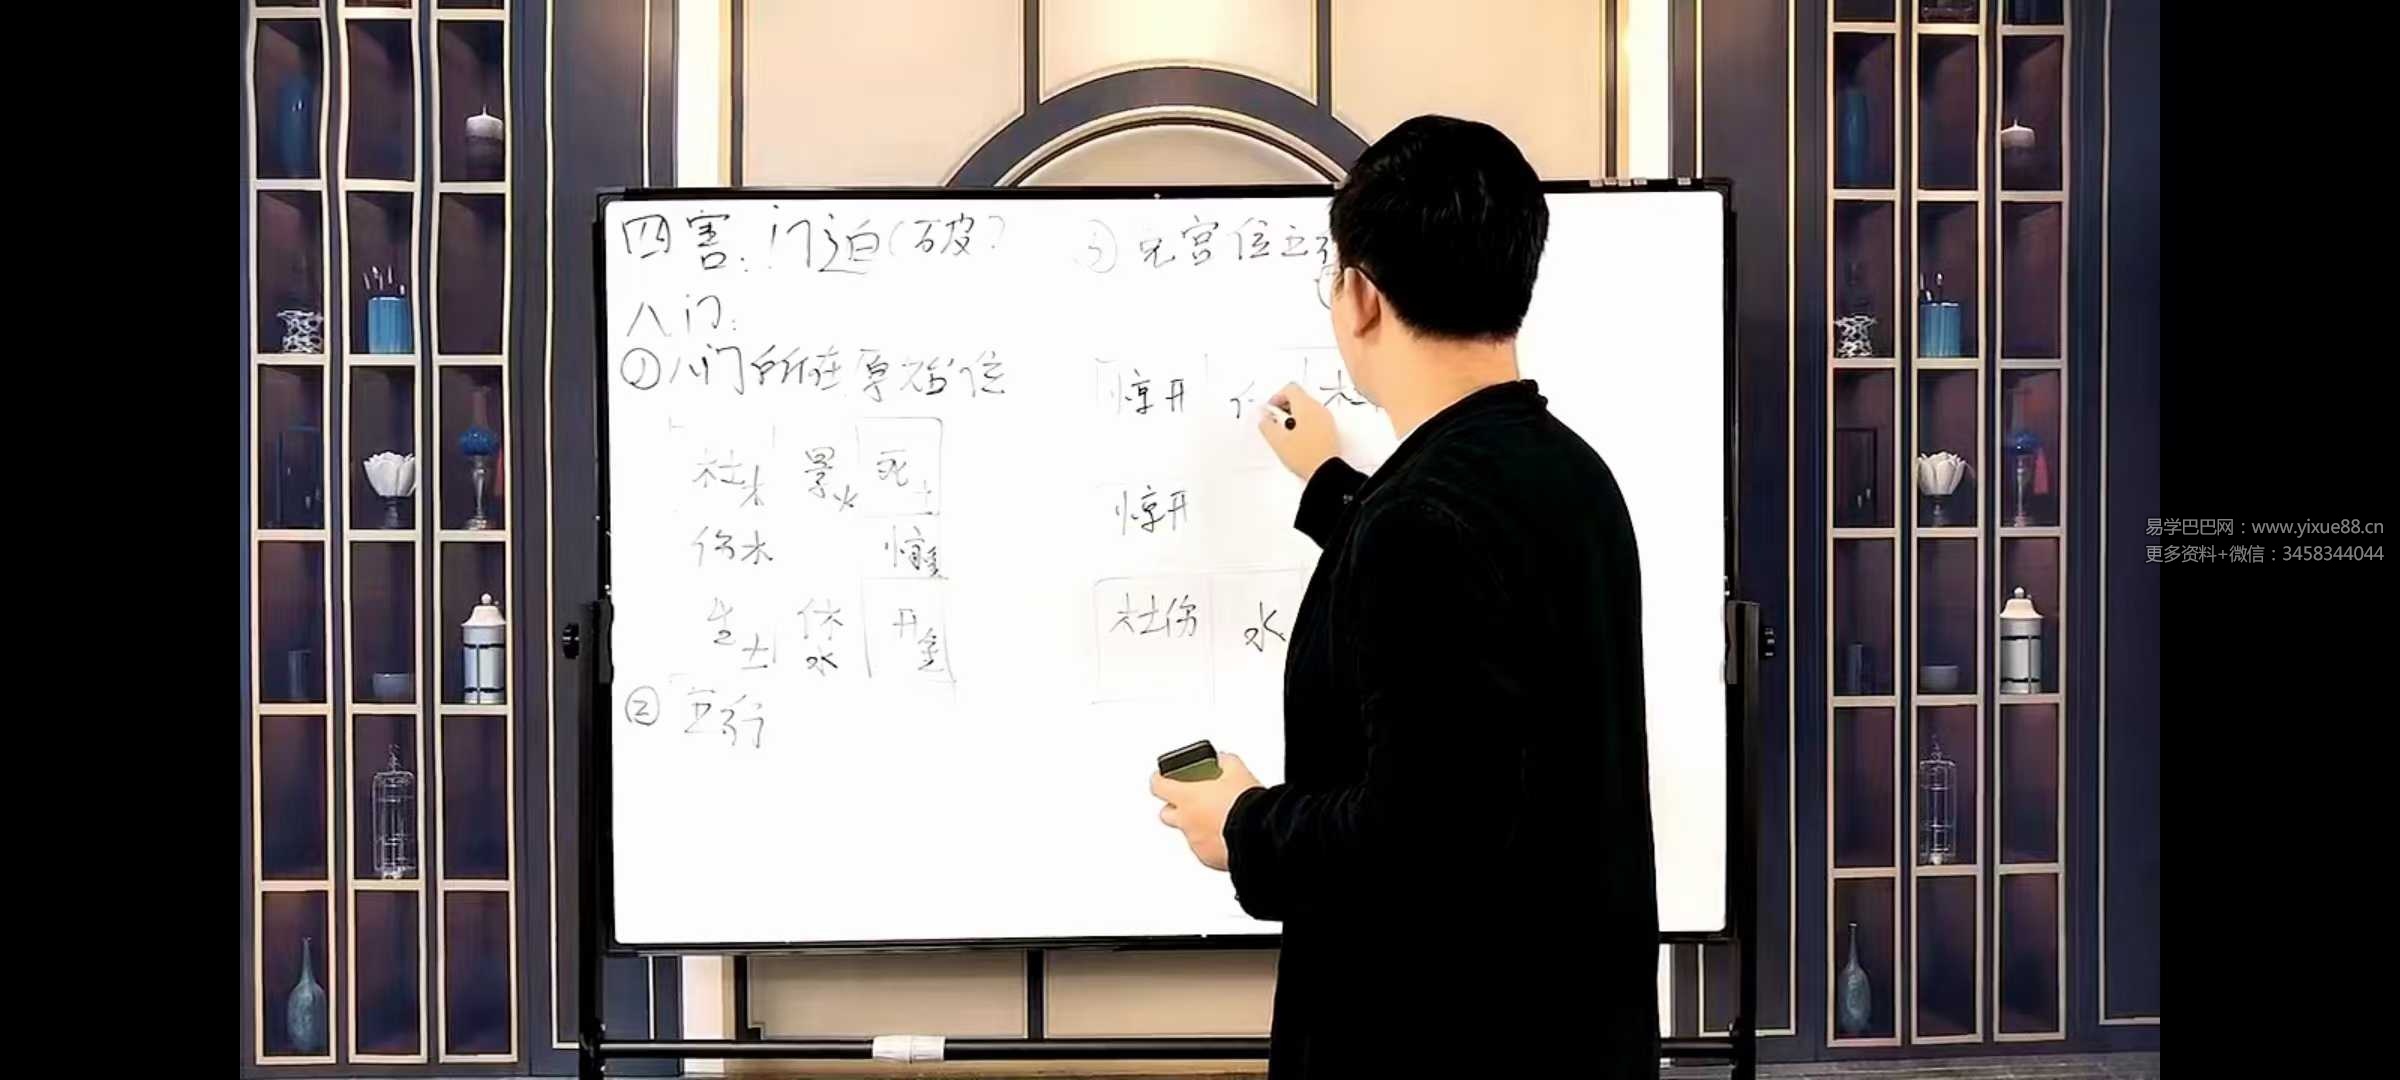 四害:门迫(破?
八门:
①八门所在原始位
杜木 景火 死土
伤木 惊金
生土 休水 开金
② 五行
③ 宫位五行
惊开 休 杜
惊开
杜伤 水
易学巴巴网：www.yixue88.cn
更多资料+微信：3458344044